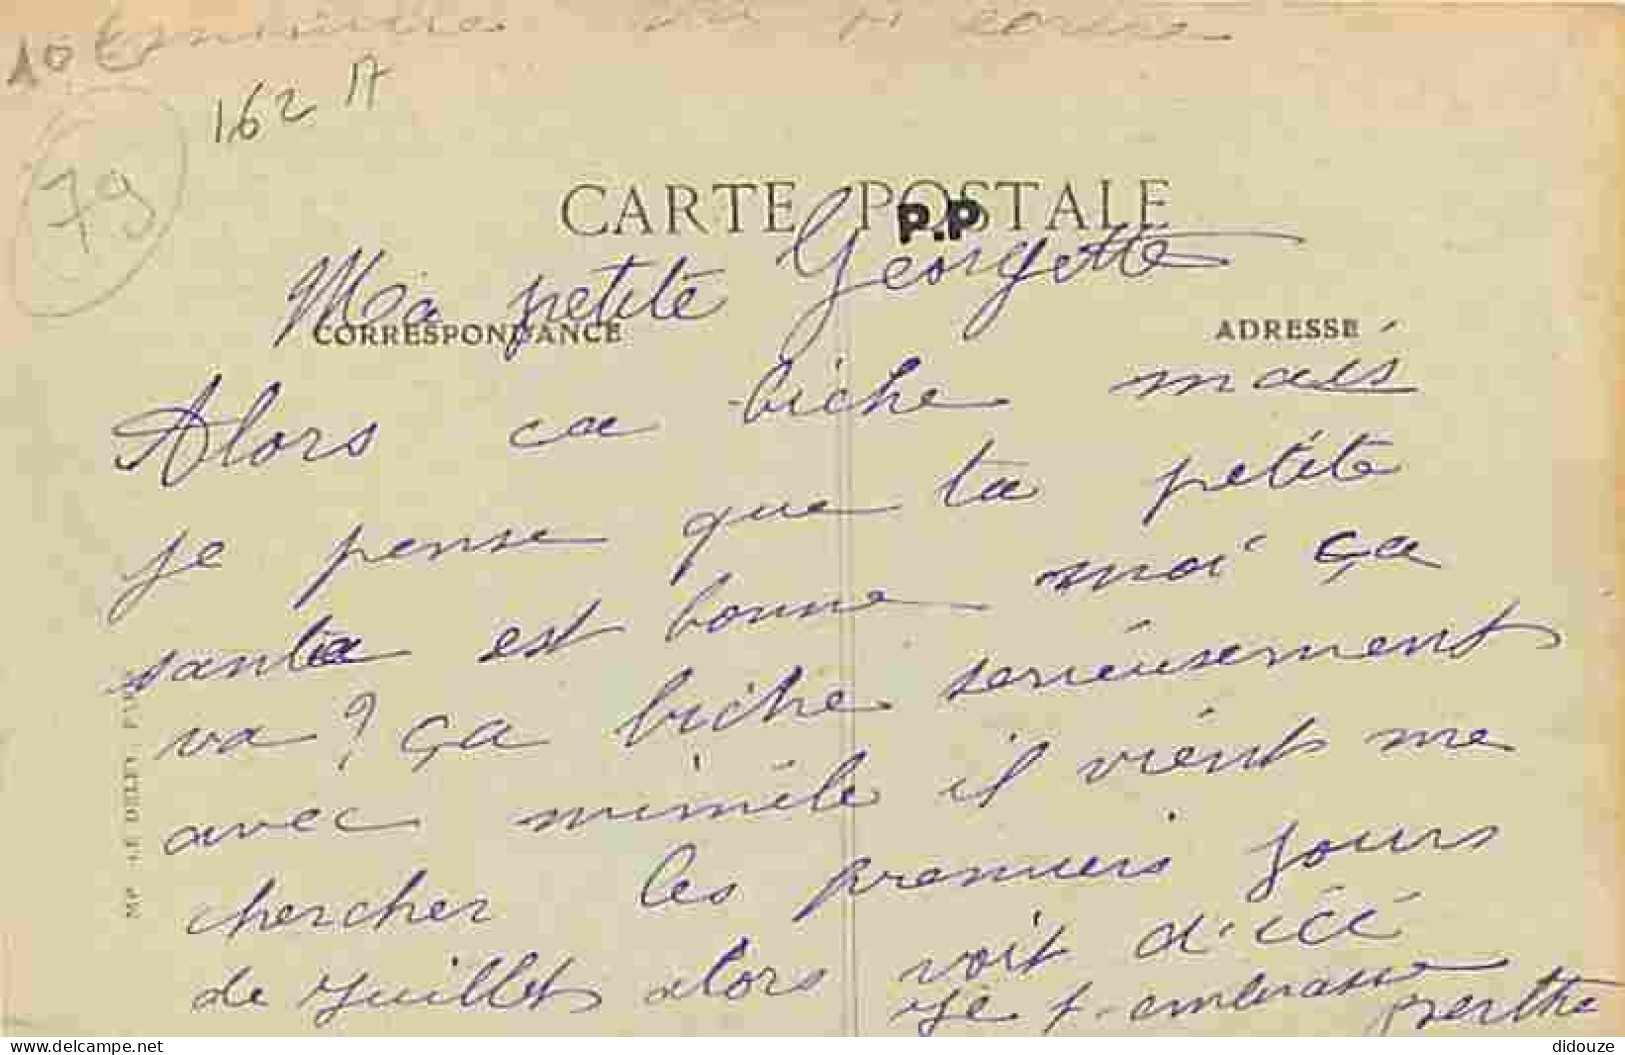 10 €
162 A
79
CARTE POSTALE
P.P
Ma petite Georgette
CORRESPONDANCE
ADRESSE
Alors ca biche mais
je pense que ta petite
santée est bonne moi ça
va ? ça biche serieusement
avec mimile il vient me
chercher les premiers jours
de Juillet alors voit d'ici
Je t-embrasse Berthe
didouze
www.delcampe.net